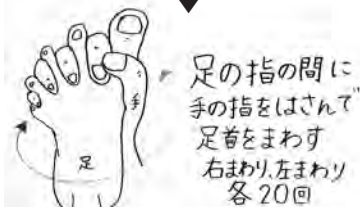 足の指の間に
手の指をはさんで
足首をまわす
右まわり、左まわり
各20回
手
足